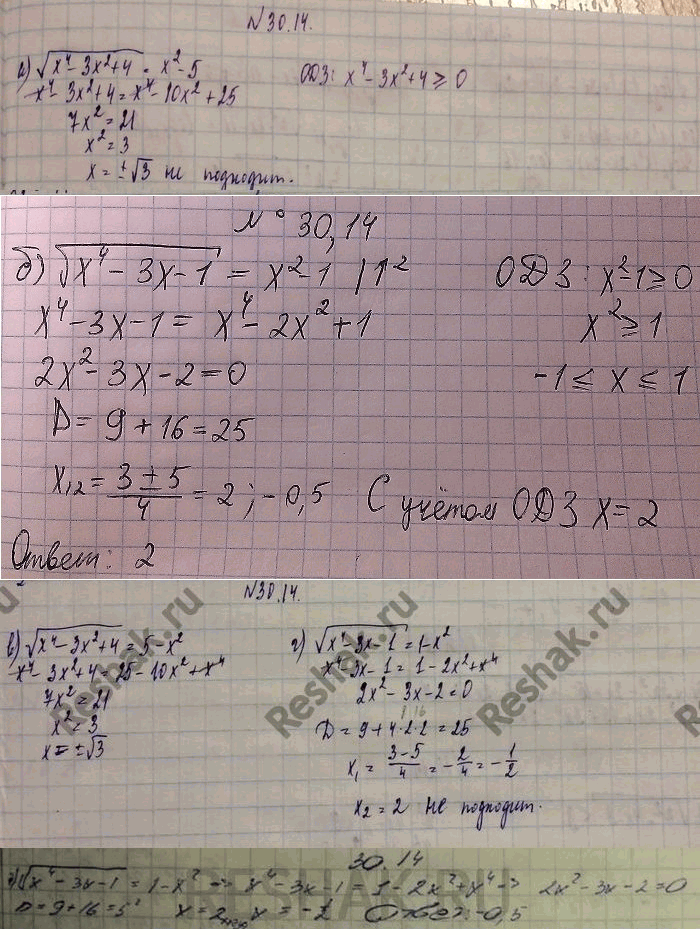 №30.14.
а) √(x⁴ - 3x² + 4) = x² - 5 ОДЗ: x⁴ - 3x² + 4 ≥ 0
x⁴ - 3x² + 4 = x⁴ - 10x² + 25
7x² = 21
x² = 3
x = ±√3 не подходит.
№ 30,14
б) √(x⁴ - 3x - 1) = x² - 1 |↑² ОДЗ: x² - 1 ≥ 0
x⁴ - 3x - 1 = x⁴ - 2x² + 1 x² ≥ 1
2x² - 3x - 2 = 0 -1 ≤ x ≤ 1
D = 9 + 16 = 25
x₁,₂ = (3 ± 5)/4 = 2; -0,5 С учётом ОДЗ x = 2
Ответ: 2
№30.14.
в) √(x⁴ - 3x² + 4) = 5 - x²
x⁴ - 3x² + 4 = 25 - 10x² + x⁴
7x² = 21
x² = 3
x = ±√3
г) √(x⁴ - 3x - 1) = 1 - x²
x⁴ - 3x - 1 = 1 - 2x² + x⁴
2x² - 3x - 2 = 0
D = 9 + 4·2·2 = 25
x₁ = (3 - 5)/4 = -2/4 = -1/2
x₂ = 2 не подходит.
Reshak.ru
Reshak.ru
Reshak.ru
30.14
г) √(x⁴ - 3x - 1) = 1 - x² => x⁴ - 3x - 1 = 1 - 2x² + x⁴ => 2x² - 3x - 2 = 0
D = 9 + 16 = 5² x = 2 x = -1/2 Ответ: -0,5
RESHAK.RU